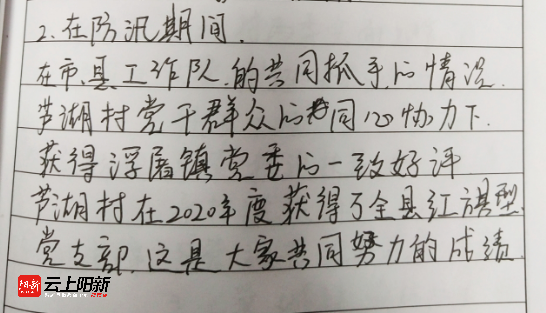 2.在防汛期间.
在市.县.工作队.的共同抓手的情况.
芦湖村党干群众的共同心协力下.
获得浮屠镇党委的一致好评
芦湖村在2020年度获得了全县红旗型.
党支部.这是大家共同努力的成绩.
阳新 云上阳新